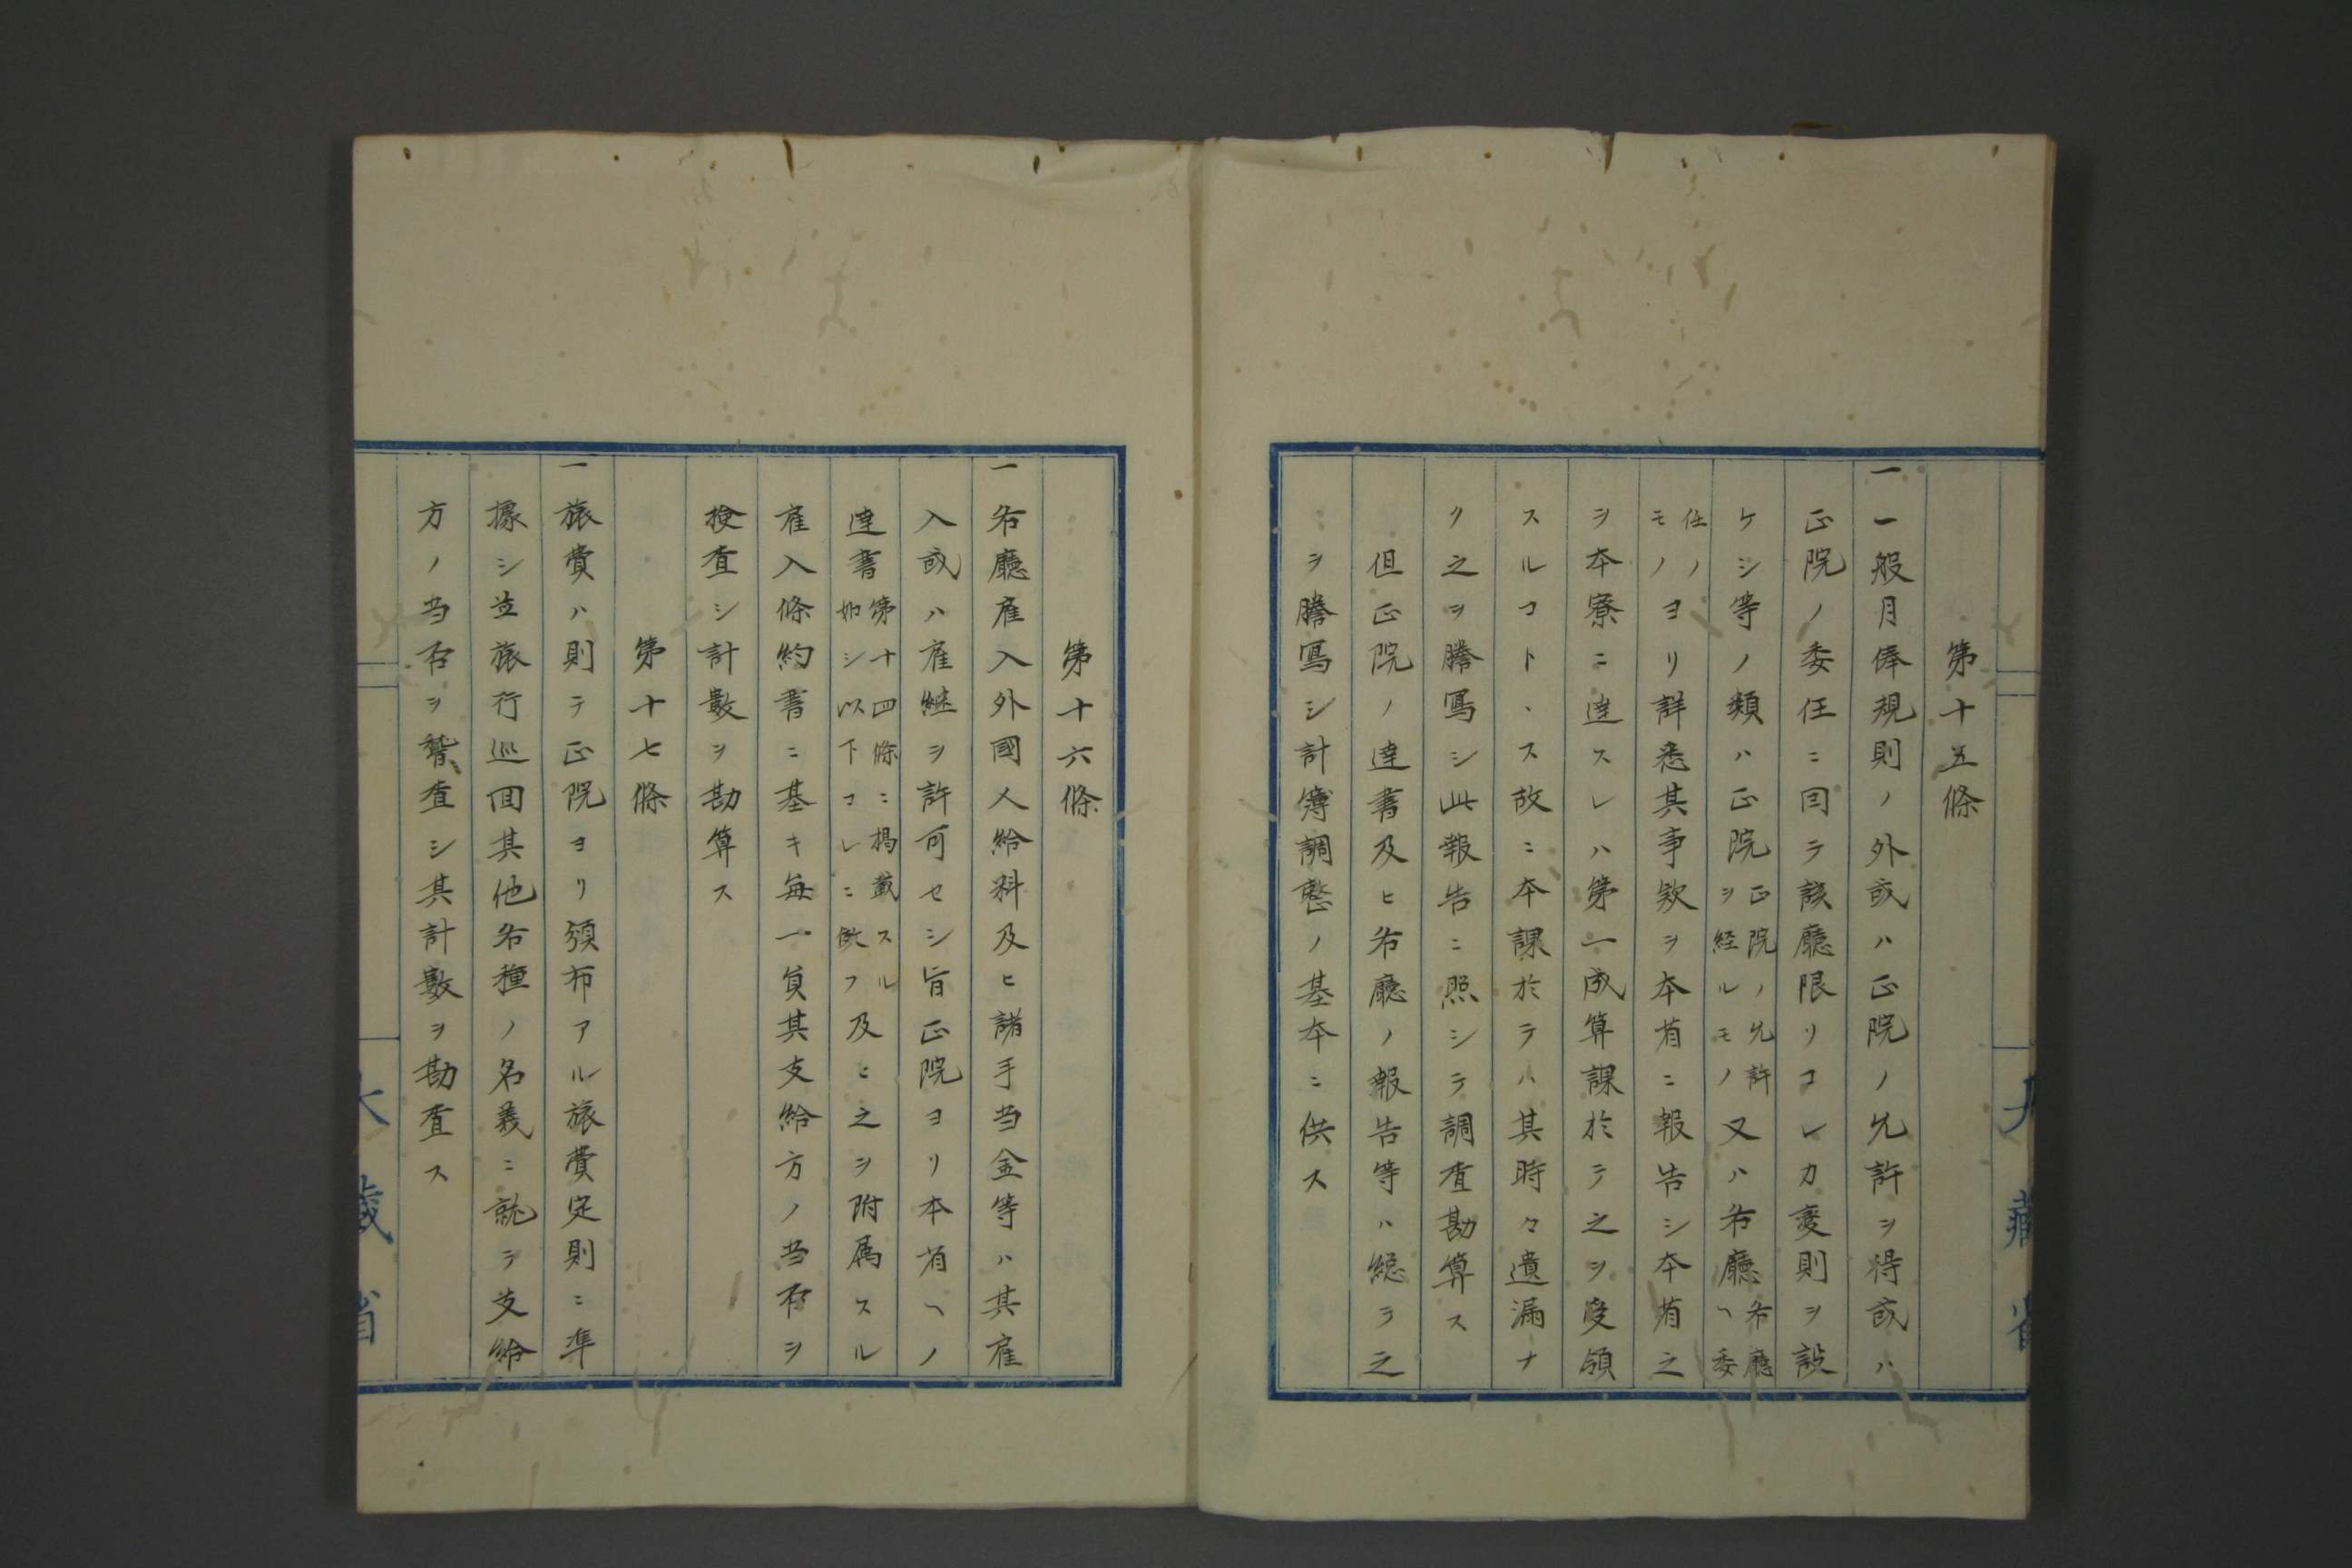 第十五條
一一般月俸規則ノ外或ハ正院ノ允許ヲ得或ハ
正院ノ委任ニ因テ該廳限リコレカ変則ヲ設
ケシ等ノ類ハ正院正院ノ允許ヲ経ルモノ又ハ各廳各廳ヘ委
任ノモノヨリ詳悉其事欵ヲ本省ニ報告シ本省之
ヲ本寮ニ達スレハ第一成算課於テ之ヲ受領
スルコトヽス故ニ本課於テハ其時々遺漏ナ
ク之ヲ謄寫シ此報告ニ照シテ調査勘算ス
但正院ノ達書及ヒ各廳ノ報告等ハ総テ之
ヲ謄寫シ計簿調整ノ基本ニ供ス
第十六條
一各廳雇入外國人給料及ヒ諸手当金等ハ其雇
入或ハ雇継ヲ許可セシ旨正院ヨリ本省ヘノ
達書第十四條ニ掲載スル如シ以下コレニ倣フ及ヒ之ヲ附属スル
雇入條約書ニ基キ毎一負其支給方ノ当否ヲ
検査シ計數ヲ勘算ス
第十七條
一旅費ハ則テ正院ヨリ頒布アル旅費定則ニ準
據シ並旅行巡回其他各種ノ名義ニ就テ支給
方ノ当否ヲ督査シ其計數ヲ勘査ス
大藏省